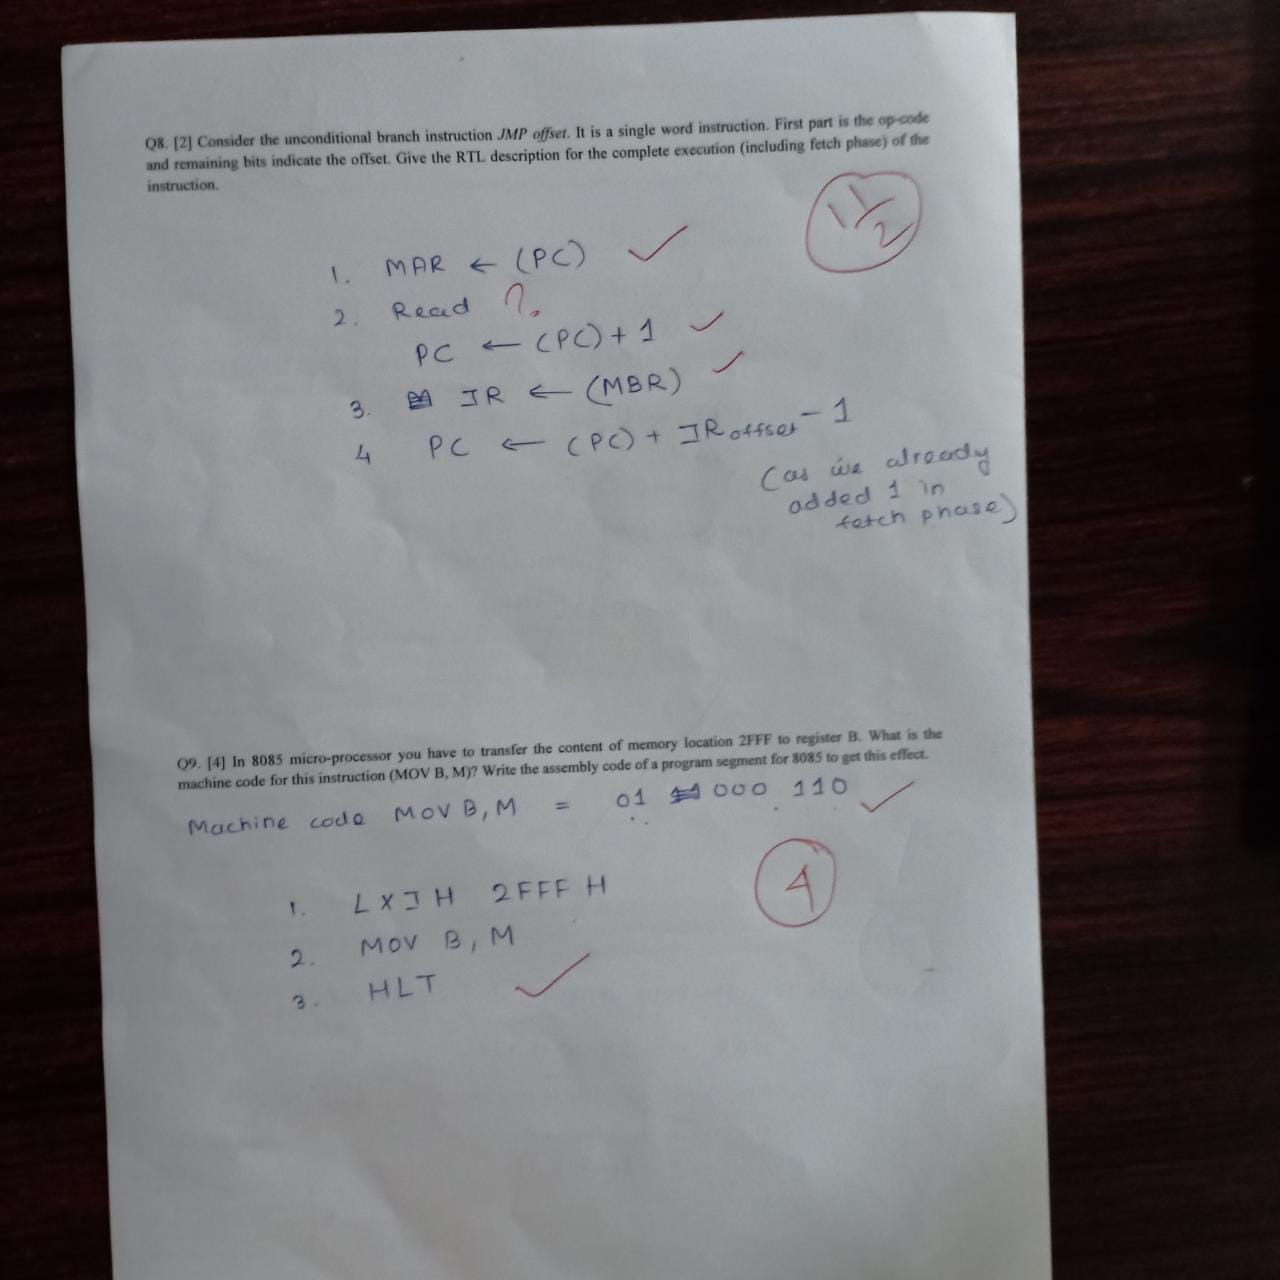 Q8. [2] Consider the unconditional branch instruction JMP offset. It is a single word instruction. First part is the op-code
and remaining bits indicate the offset. Give the RTL description for the complete execution (including fetch phase) of the
instruction.
1 1/2
1. MAR ← (PC) ✓
2. Read ?
PC ← (PC) + 1 ✓
3. IR ← (MBR) ✓
4 PC ← (PC) + IR offset - 1
(as we already
added 1 in
fetch phase)
Q9. [4] In 8085 micro-processor you have to transfer the content of memory location 2FFF to register B. What is the
machine code for this instruction (MOV B, M)? Write the assembly code of a program segment for 8085 to get this effect.
Machine code MOV B, M = 01 000 110 ✓
4
1. LXI H 2FFF H
2. MOV B, M
3. HLT ✓